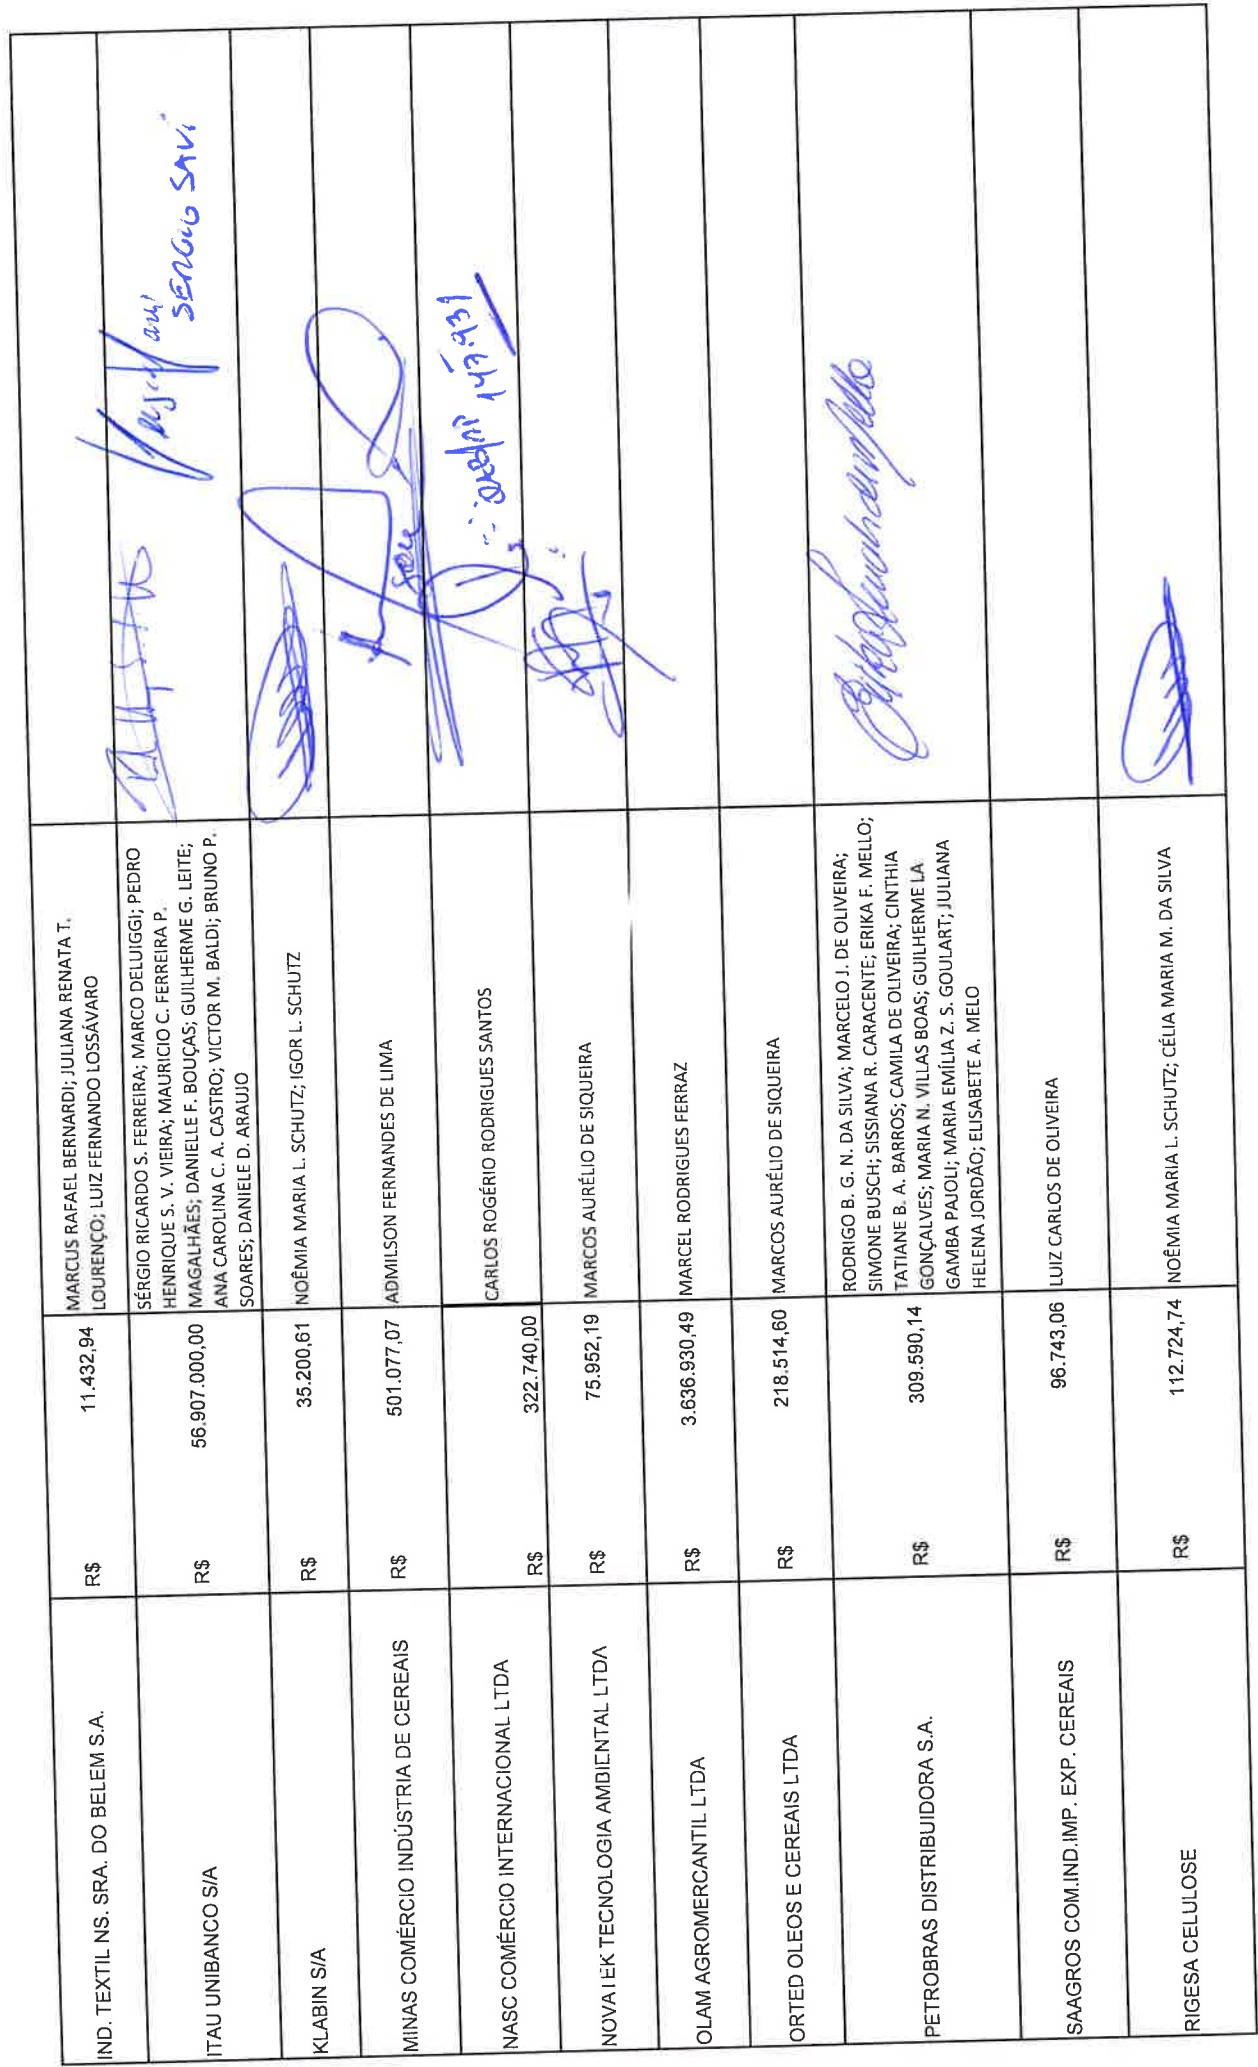 IND. TEXTIL NS. SRA. DO BELEM S.A. R$ 11.432,94 MARCUS RAFAEL BERNARDI; JULIANA RENATA T.
LOURENÇO; LUIZ FERNANDO LOSSÁVARO
ITAU UNIBANCO S/A R$ 56.907.000,00 SÉRGIO RICARDO S. FERREIRA; MARCO DELUIGGI; PEDRO
HENRIQUE S. V. VIEIRA; MAURICIO C. FERREIRA P.
MAGALHÃES; DANIELLE F. BOUÇAS; GUILHERME G. LEITE;
ANA CAROLINA C. A. CASTRO; VICTOR M. BALDI; BRUNO P.
SOARES; DANIELE D. ARAUJO
SERGIO SAVI
KLABIN S/A R$ 35.200,61 NOÊMIA MARIA L. SCHUTZ; IGOR L. SCHUTZ
MINAS COMÉRCIO INDÚSTRIA DE CEREAIS R$ 501.077,07 ADMILSON FERNANDES DE LIMA
NASC COMÉRCIO INTERNACIONAL LTDA R$ 322.740,00 CARLOS ROGÉRIO RODRIGUES SANTOS
147.931
NOVATEK TECNOLOGIA AMBIENTAL LTDA R$ 75.952,19 MARCOS AURÉLIO DE SIQUEIRA
OLAM AGROMERCANTIL LTDA R$ 3.636.930,49 MARCEL RODRIGUES FERRAZ
ORTED OLEOS E CEREAIS LTDA R$ 218.514,60 MARCOS AURÉLIO DE SIQUEIRA
PETROBRAS DISTRIBUIDORA S.A. R$ 309.590,14 RODRIGO B. G. N. DA SILVA; MARCELO J. DE OLIVEIRA;
SIMONE BUSCH; SISSIANA R. CARACENTE; ERIKA F. MELLO;
TATIANE B. A. BARROS; CAMILA DE OLIVEIRA; CINTHIA
GONÇALVES; MARIA N. VILLAS BOAS; GUILHERME LA
GAMBA PAJOLI; MARIA EMÍLIA Z. S. GOULART; JULIANA
HELENA JORDÃO; ELISABETE A. MELO
SAAGROS COM.IND.IMP. EXP. CEREAIS R$ 96.743,06 LUIZ CARLOS DE OLIVEIRA
RIGESA CELULOSE R$ 112.724,74 NOÊMIA MARIA L. SCHUTZ; CÉLIA MARIA M. DA SILVA